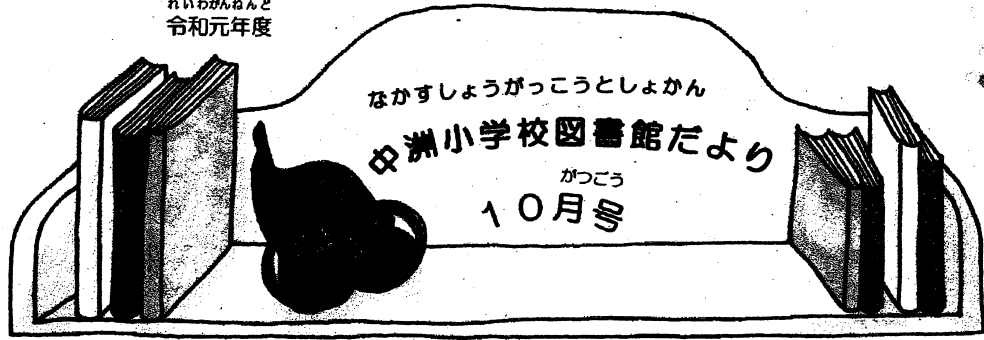 れいわがんねんど
令和元年度
なかすしょうがっこうとしょかん
中洲小学校図書館だより
がつごう
10月号